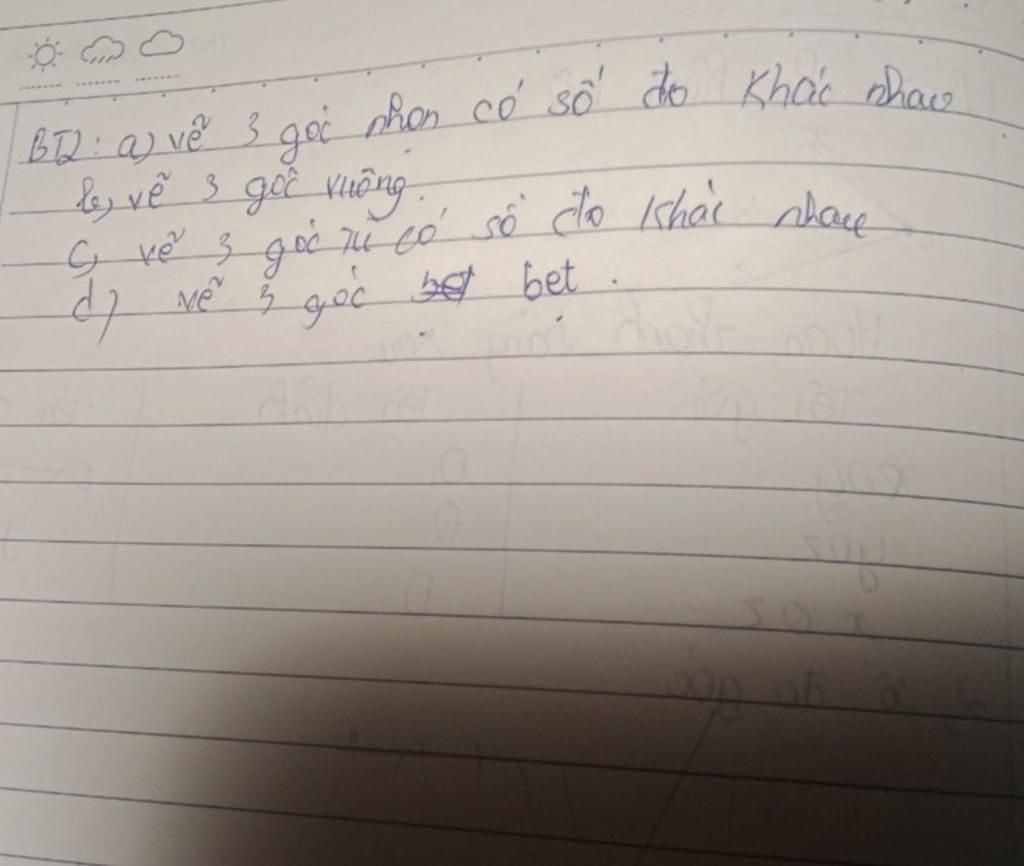 BT2: a) vẽ 3 góc nhọn có số đo khác nhau
b, vẽ 3 góc vuông.
c, vẽ 3 góc tù có số đo khác nhau
d) vẽ 3 góc bet.